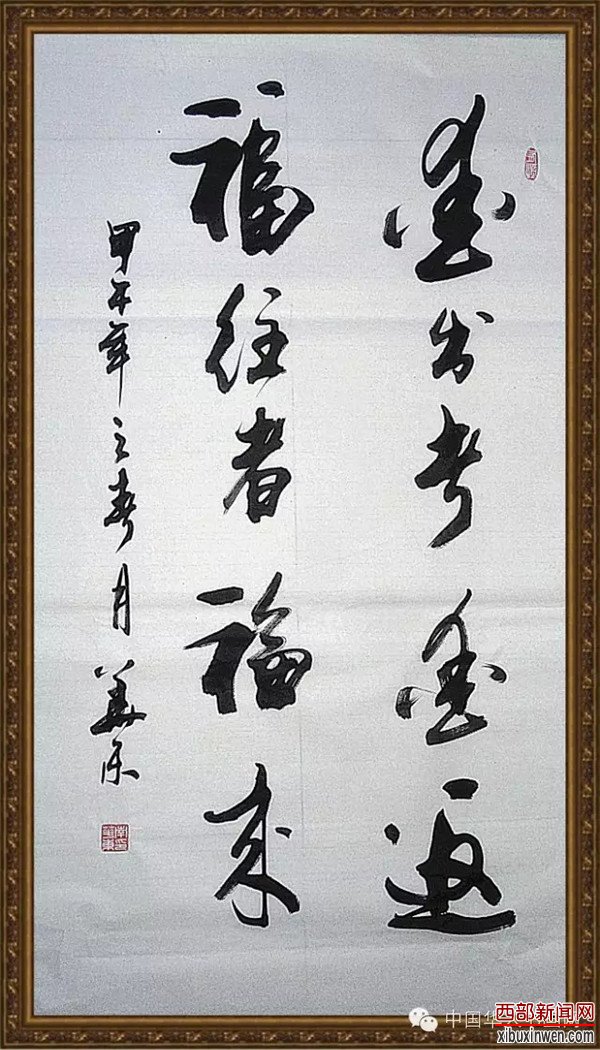 爱出者爱返
福往者福来
甲午年之春月
中国华
西部新闻网
xibuxinwen.com